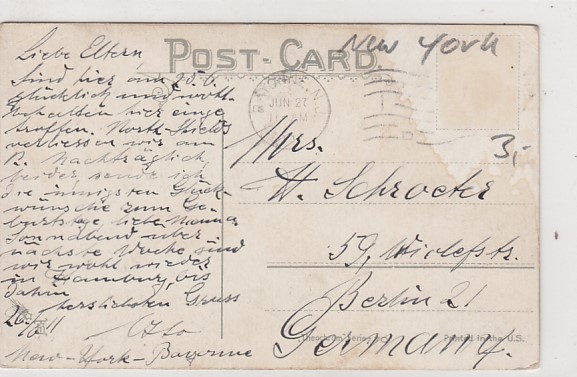 Post-Card.
New York
Liebe Eltern
Sind hier am 20.6.
glücklich und wohl-
behalten hier einge
troffen. North-Shields
verliessen wir am
Nachträglich
leider sende ich
die innigsten Glück-
wünsche zum Ge-
burtstage, liebe Mama.
Sonnabend über
nächste Woche sind
wir wohl wieder
in Hamburg, bis
dahin
herzlichsten Gruss
Otto
New-York-Bayonne
N.J.
JUN 27
11 AM
3,-
Mrs.
W. Schroeter
59, Wiclefstr.
Berlin 21
Germany.
Theochrom Series
Printed in the U.S.